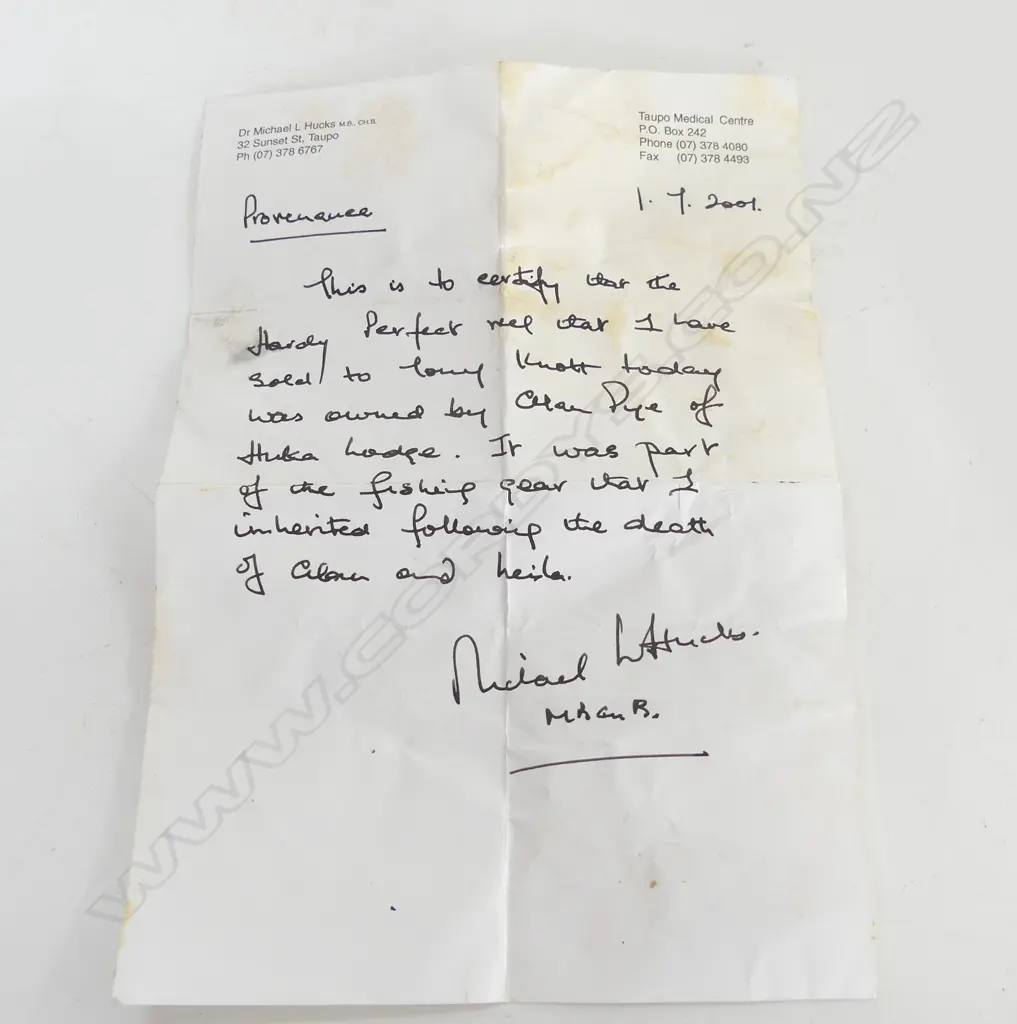 Dr Michael L Hucks M.B., CH.B.
32 Sunset St, Taupo
Ph (07) 378 6767
Taupo Medical Centre
P.O. Box 242
Phone (07) 378 4080
Fax (07) 378 4493
Provenance
1. 7. 2001.
This is to certify that the
Hardy Perfect reel that I have
sold to Tony Knott today
was owned by Alan Pye of
Huka Lodge. It was part
of the fishing gear that I
inherited following the death
of Alan and Leila.
Michael L Hucks.
MB Ch B.
WWW.CORDYS.CO.NZ